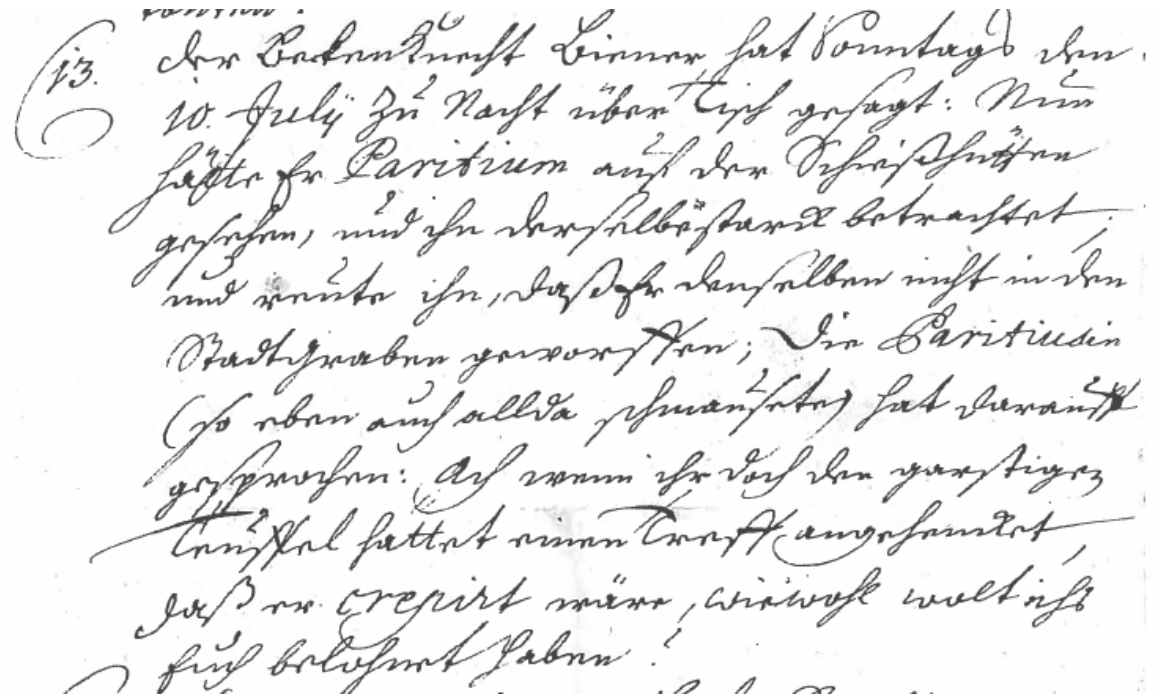 13. der Beckenknecht Biener, hat Sonntags den
10. Julij zu Nacht über Tisch gesagt: Nun
hätte Er Paritium auß der Schießhütten
gesehen, und ihn derselbe starck betrachtet,
und reute ihn, daß Er denselben nicht in den
Stadtgraben geworffen; Die Paritiusin
(so eben auch allda schmausete) hat darauff
gesprochen: Ach wenn ihr doch den garstigen
Teuffel hattet einen Treff angehencket,
daß er crepirt wäre, wie wohl wolt ichs
Euch belohnet haben!